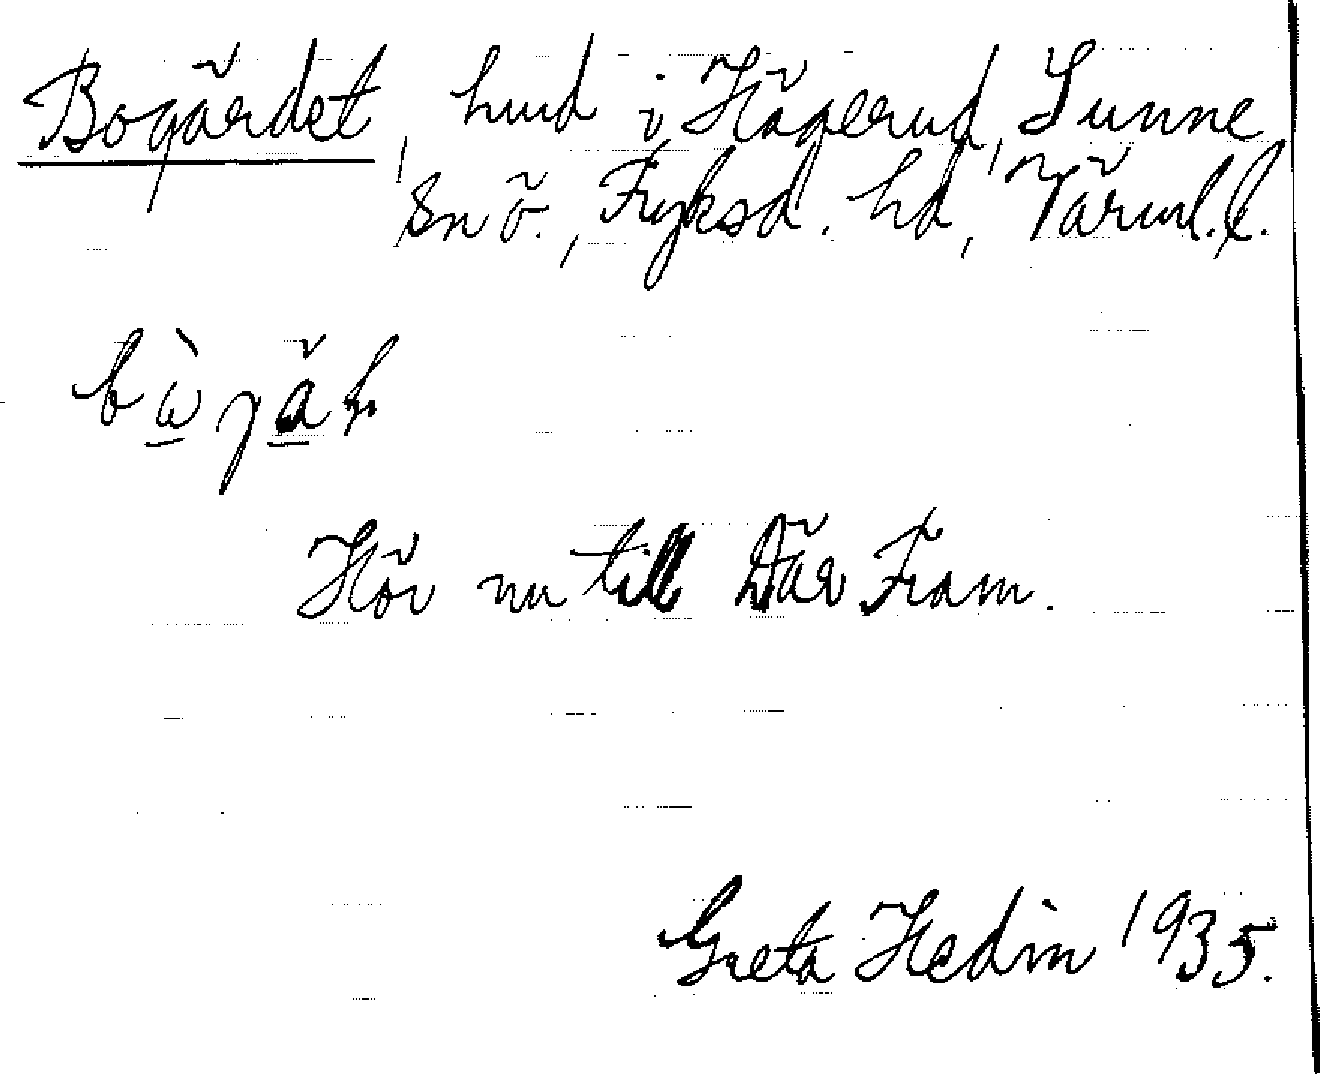 Bogärdet, hmd i Hägerud, Sunne
sn ö., Fryksd. hd, Värml. l.
Hör nu till Där Fram.
Greta Hedin 1935.